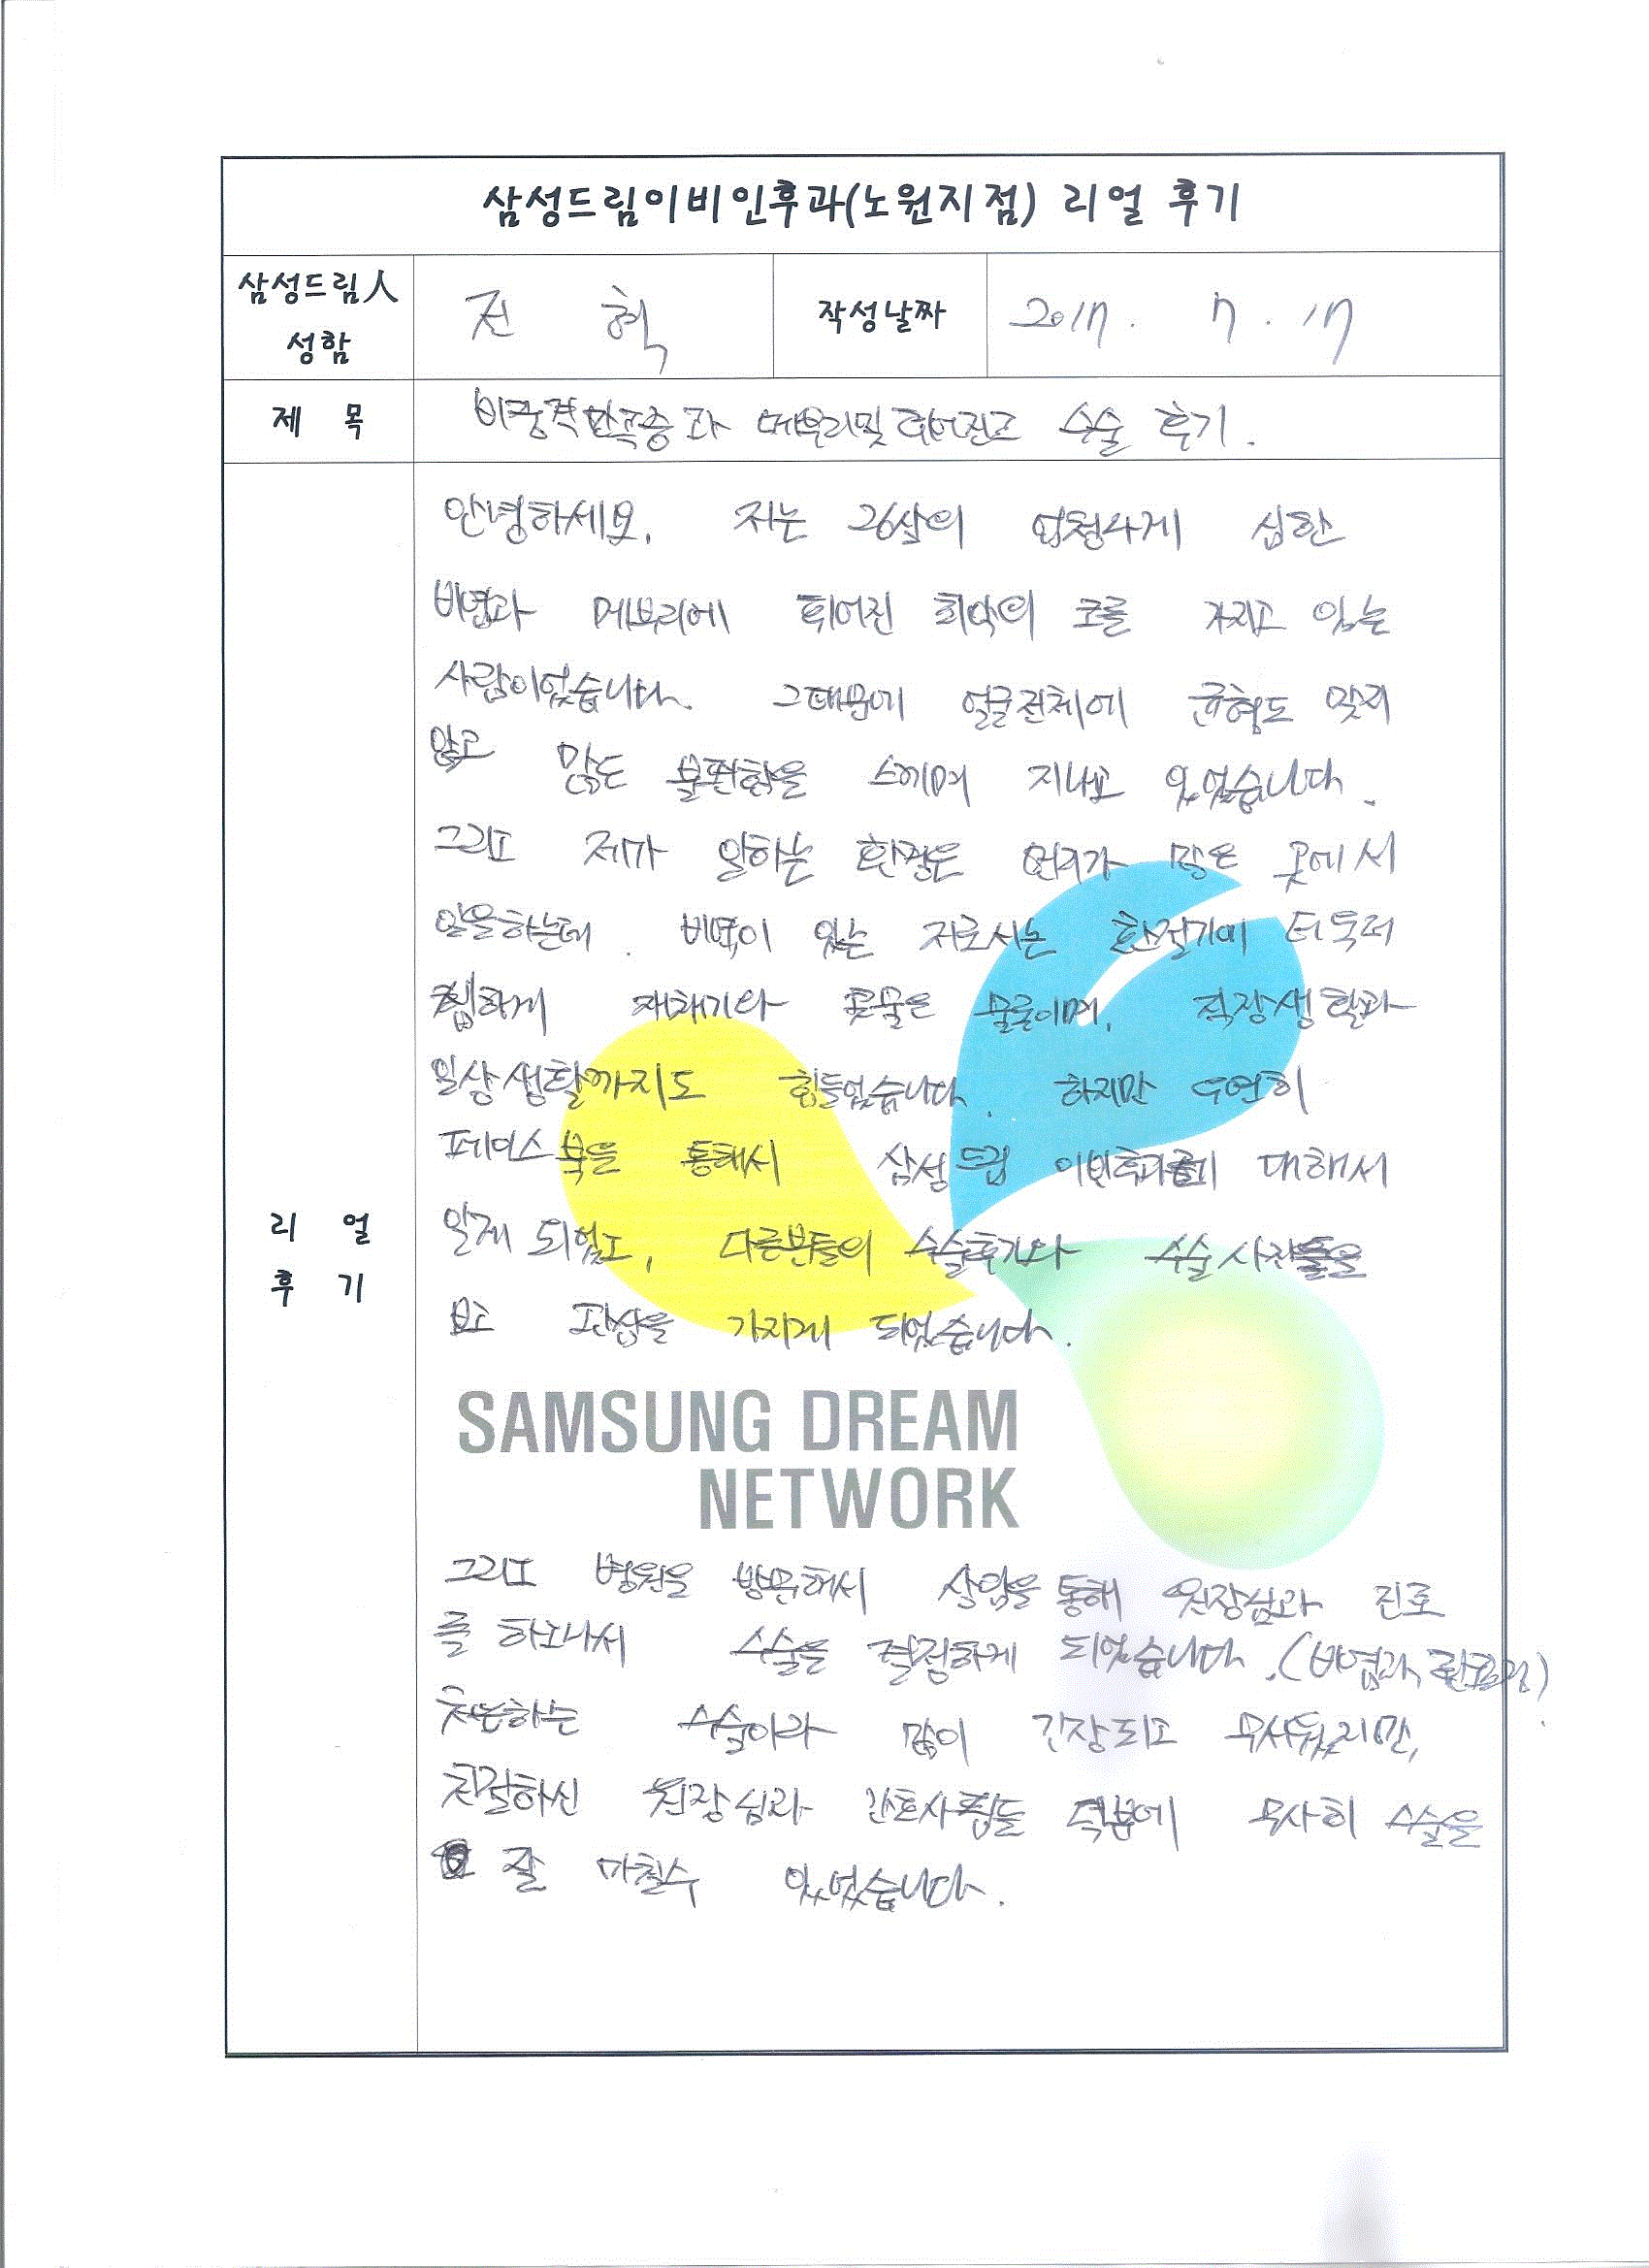 삼성드림이비인후과(노원지점) 리얼 후기
삼성드림人
성함
전 혁
작성날짜
2017. 7. 17
제 목
비중격만곡증과 매부리및 휘어진코 수술 후기.
리 얼
후 기
안녕하세요. 저는 26살의 엄청나게 심한
비염과 메부리에 휘어진 최악의 코를 가지고 있는
사람이었습니다. 그때문에 얼굴전체에 균형도 맞지
않고 많은 불편함을 느끼며 지내고 있었습니다.
그리고 제가 일하는 환경은 먼지가 많은 곳에서
일을하는데. 비염이 있는 저로서는 환절기에 더욱더
심하게 재채기와 콧물은 물론이며, 직장생활과
일상생활까지도 힘들었습니다. 하지만 우연히
페이스북을 통해서 삼성드림 대해서
알게 되었고, 다른분들의 수술후기와 수술사진들을
보고 관심을 가지게 되었습니다.
SAMSUNG DREAM
NETWORK
그리고 병원을 방문해서 상담을 통해 원장님과 진료
를 하고나서 수술을 결정하게 되었습니다.(비염과,
처음하는 수술이라 많이 긴장되고 무서웠지만,
친절하신 원장님과 간호사분들 덕분에 무사히 수술을
잘 마칠수 있었습니다.